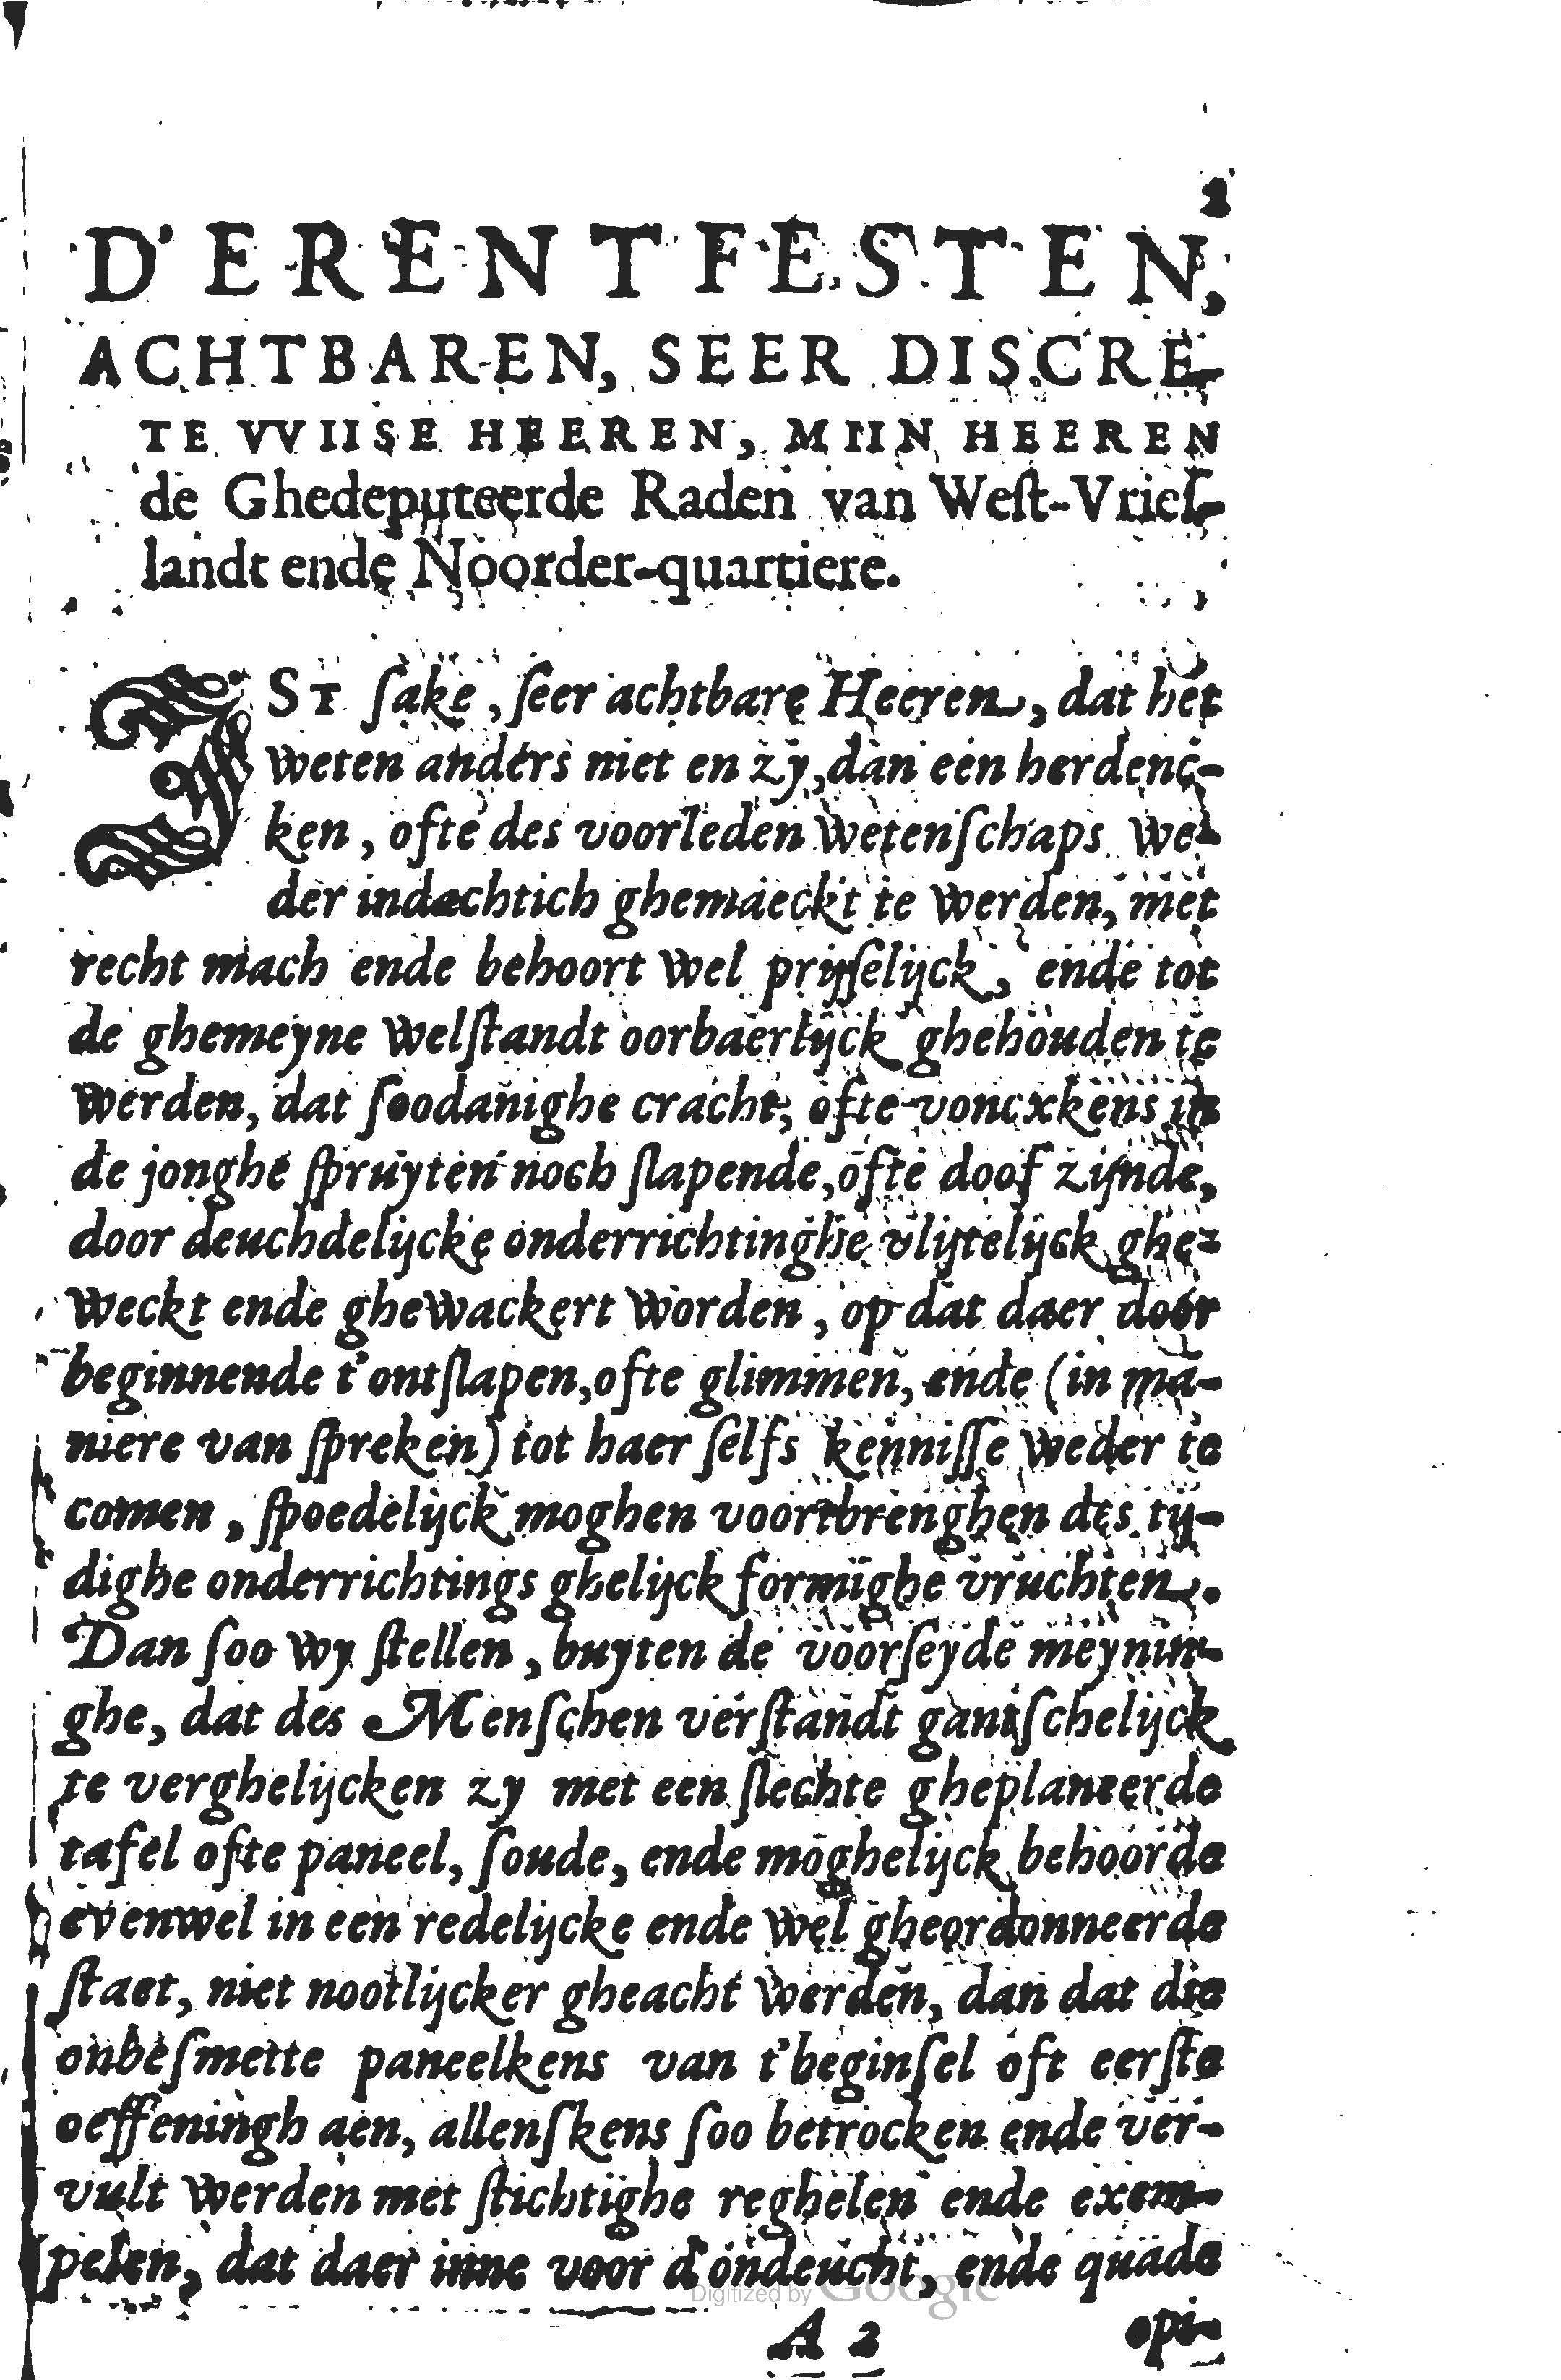 2
D'ERENTFESTEN,
ACHTBAREN, SEER DISCRE-
TE VVIISE HEEREN, MIIN HEEREN
de Ghedeputeerde Raden van Weſt-Vrieſ-
landt ende Noorder-quartiere.
IST ſake, ſeer achtbare Heeren, dat het
weten anders niet en zy, dan een herdenc-
ken, ofte des voorleden wetenſchaps we-
der indachtich ghemaeckt te werden, met
recht mach ende behoort wel prijſſelijck, ende tot
de ghemeyne welſtandt oorbaerlijck ghehouden te
werden, dat ſoodanighe cracht, ofte voncxkens in
de jonghe ſpruyten noch ſlapende, ofte doof zijnde,
door deuchdelijcke onderrichtinghe vlijtelijck ghe-
weckt ende ghewackert worden, op dat daer door
beginnende t'ontſlapen, ofte glimmen, ende (in ma-
niere van ſpreken) tot haer ſelfs kenniſſe weder te
comen, ſpoedelijck moghen voortbrenghen des tij-
dighe onderrichtings ghelijck formighe vruchten.
Dan ſoo wy ſtellen, buyten de voorſeyde meynin-
ghe, dat des Menſchen verſtandt gantſchelijck
te verghelijcken zy met een ſlechte gheplaneerde
tafel ofte paneel, ſoude, ende moghelijck behoorde
evenwel in een redelijcke ende wel gheordonneerde
ſtaet, niet nootlijcker gheacht werden, dan dat die
onbeſmette paneelkens van t'beginſel oft eerſte
oeffeningh aen, allenſkens ſoo betrocken ende ver-
vult werden met ſtichtighe reghelen ende exem-
pelen, dat daer inne voor d'ondeucht, ende quade
Digitized by Google
A 2
opi-